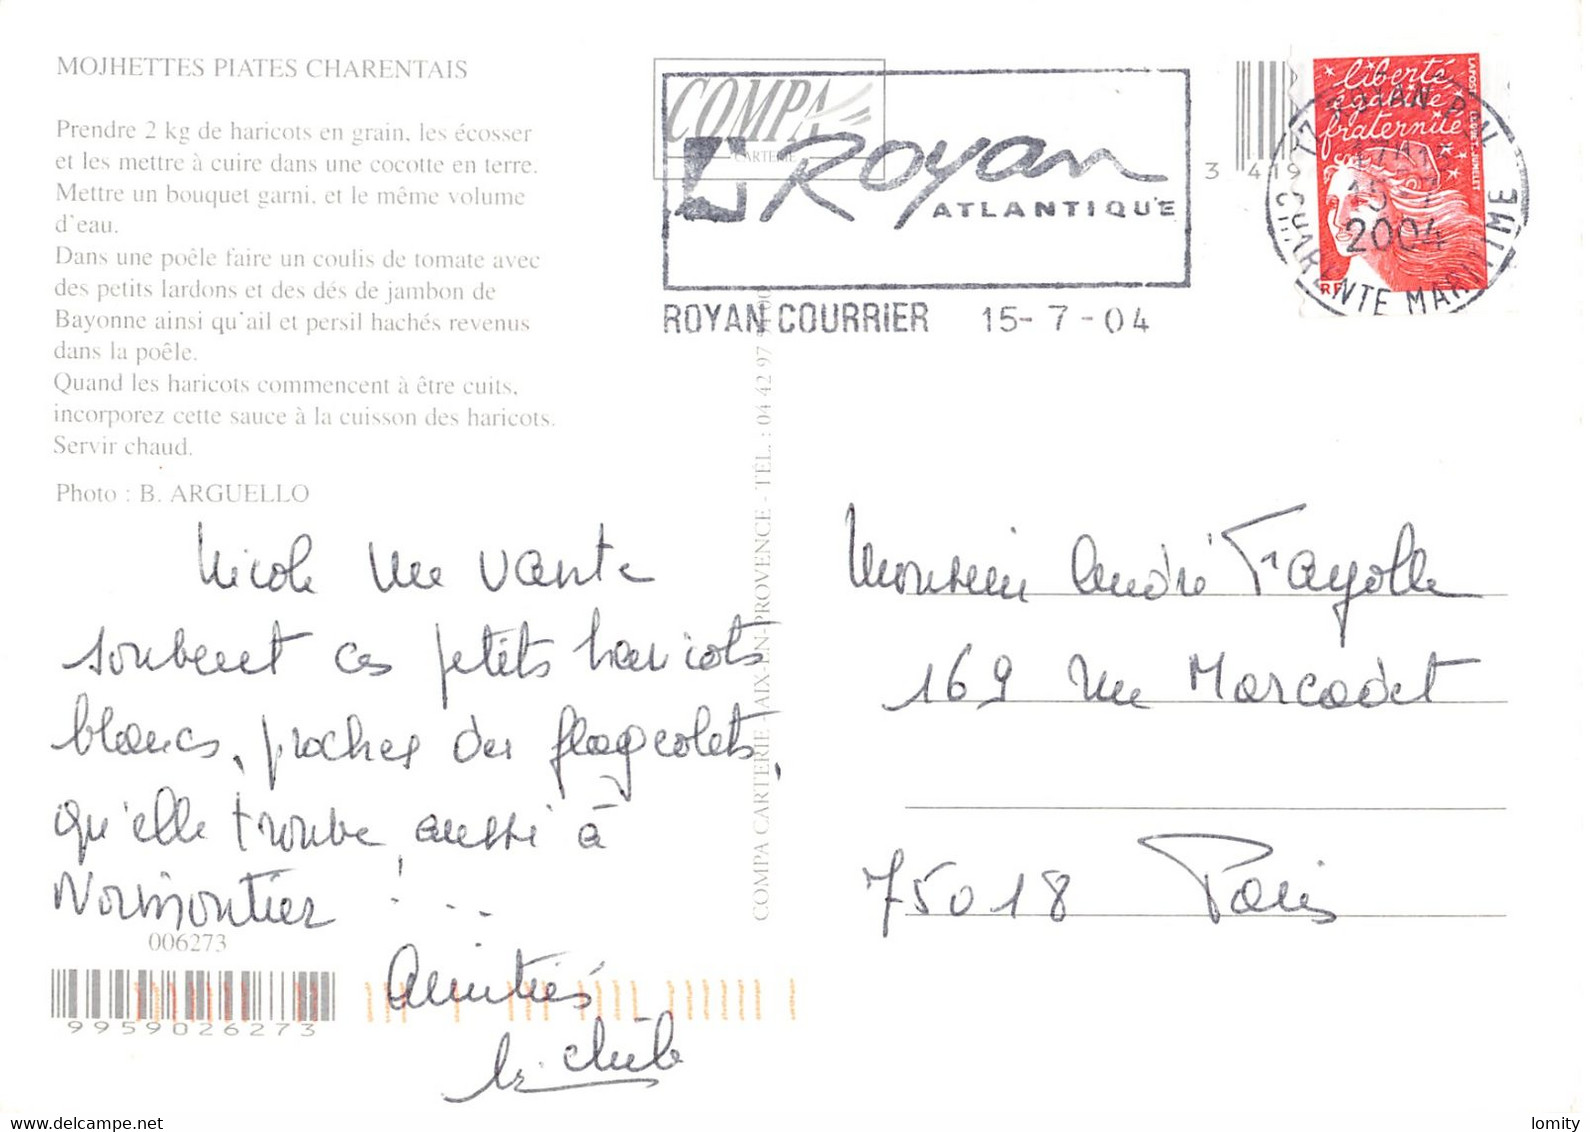 MOJHETTES PIATES CHARENTAIS
Prendre 2 kg de haricots en grain, les écosser
et les mettre à cuire dans une cocotte en terre.
Mettre un bouquet garni, et le même volume
d'eau.
Dans une poêle faire un coulis de tomate avec
des petits lardons et des dés de jambon de
Bayonne ainsi qu'ail et persil hachés revenus
dans la poêle.
Quand les haricots commencent à être cuits,
incorporez cette sauce à la cuisson des haricots.
Servir chaud.
Photo : B. ARGUELLO
COMPA
CARTERIE
Royan
ATLANTIQUE
ROYAN COURRIER 15-7-04
3 419
liberté
égalité
fraternité
RF
LA POSTE
2004
CHARENTE MARITIME
Nicole me vante
souvent ces petits haricots
blancs, proches des flageolets,
qu'elle trouve aussi à
Noirmoutier ! ...
Amitiés
COMPA CARTERIE - AIX-EN-PROVENCE - TÉL. : 04 42 97
Monsieur André Fayolle
169 rue Marcadet
75018 Paris
006273
9959026273
lomity